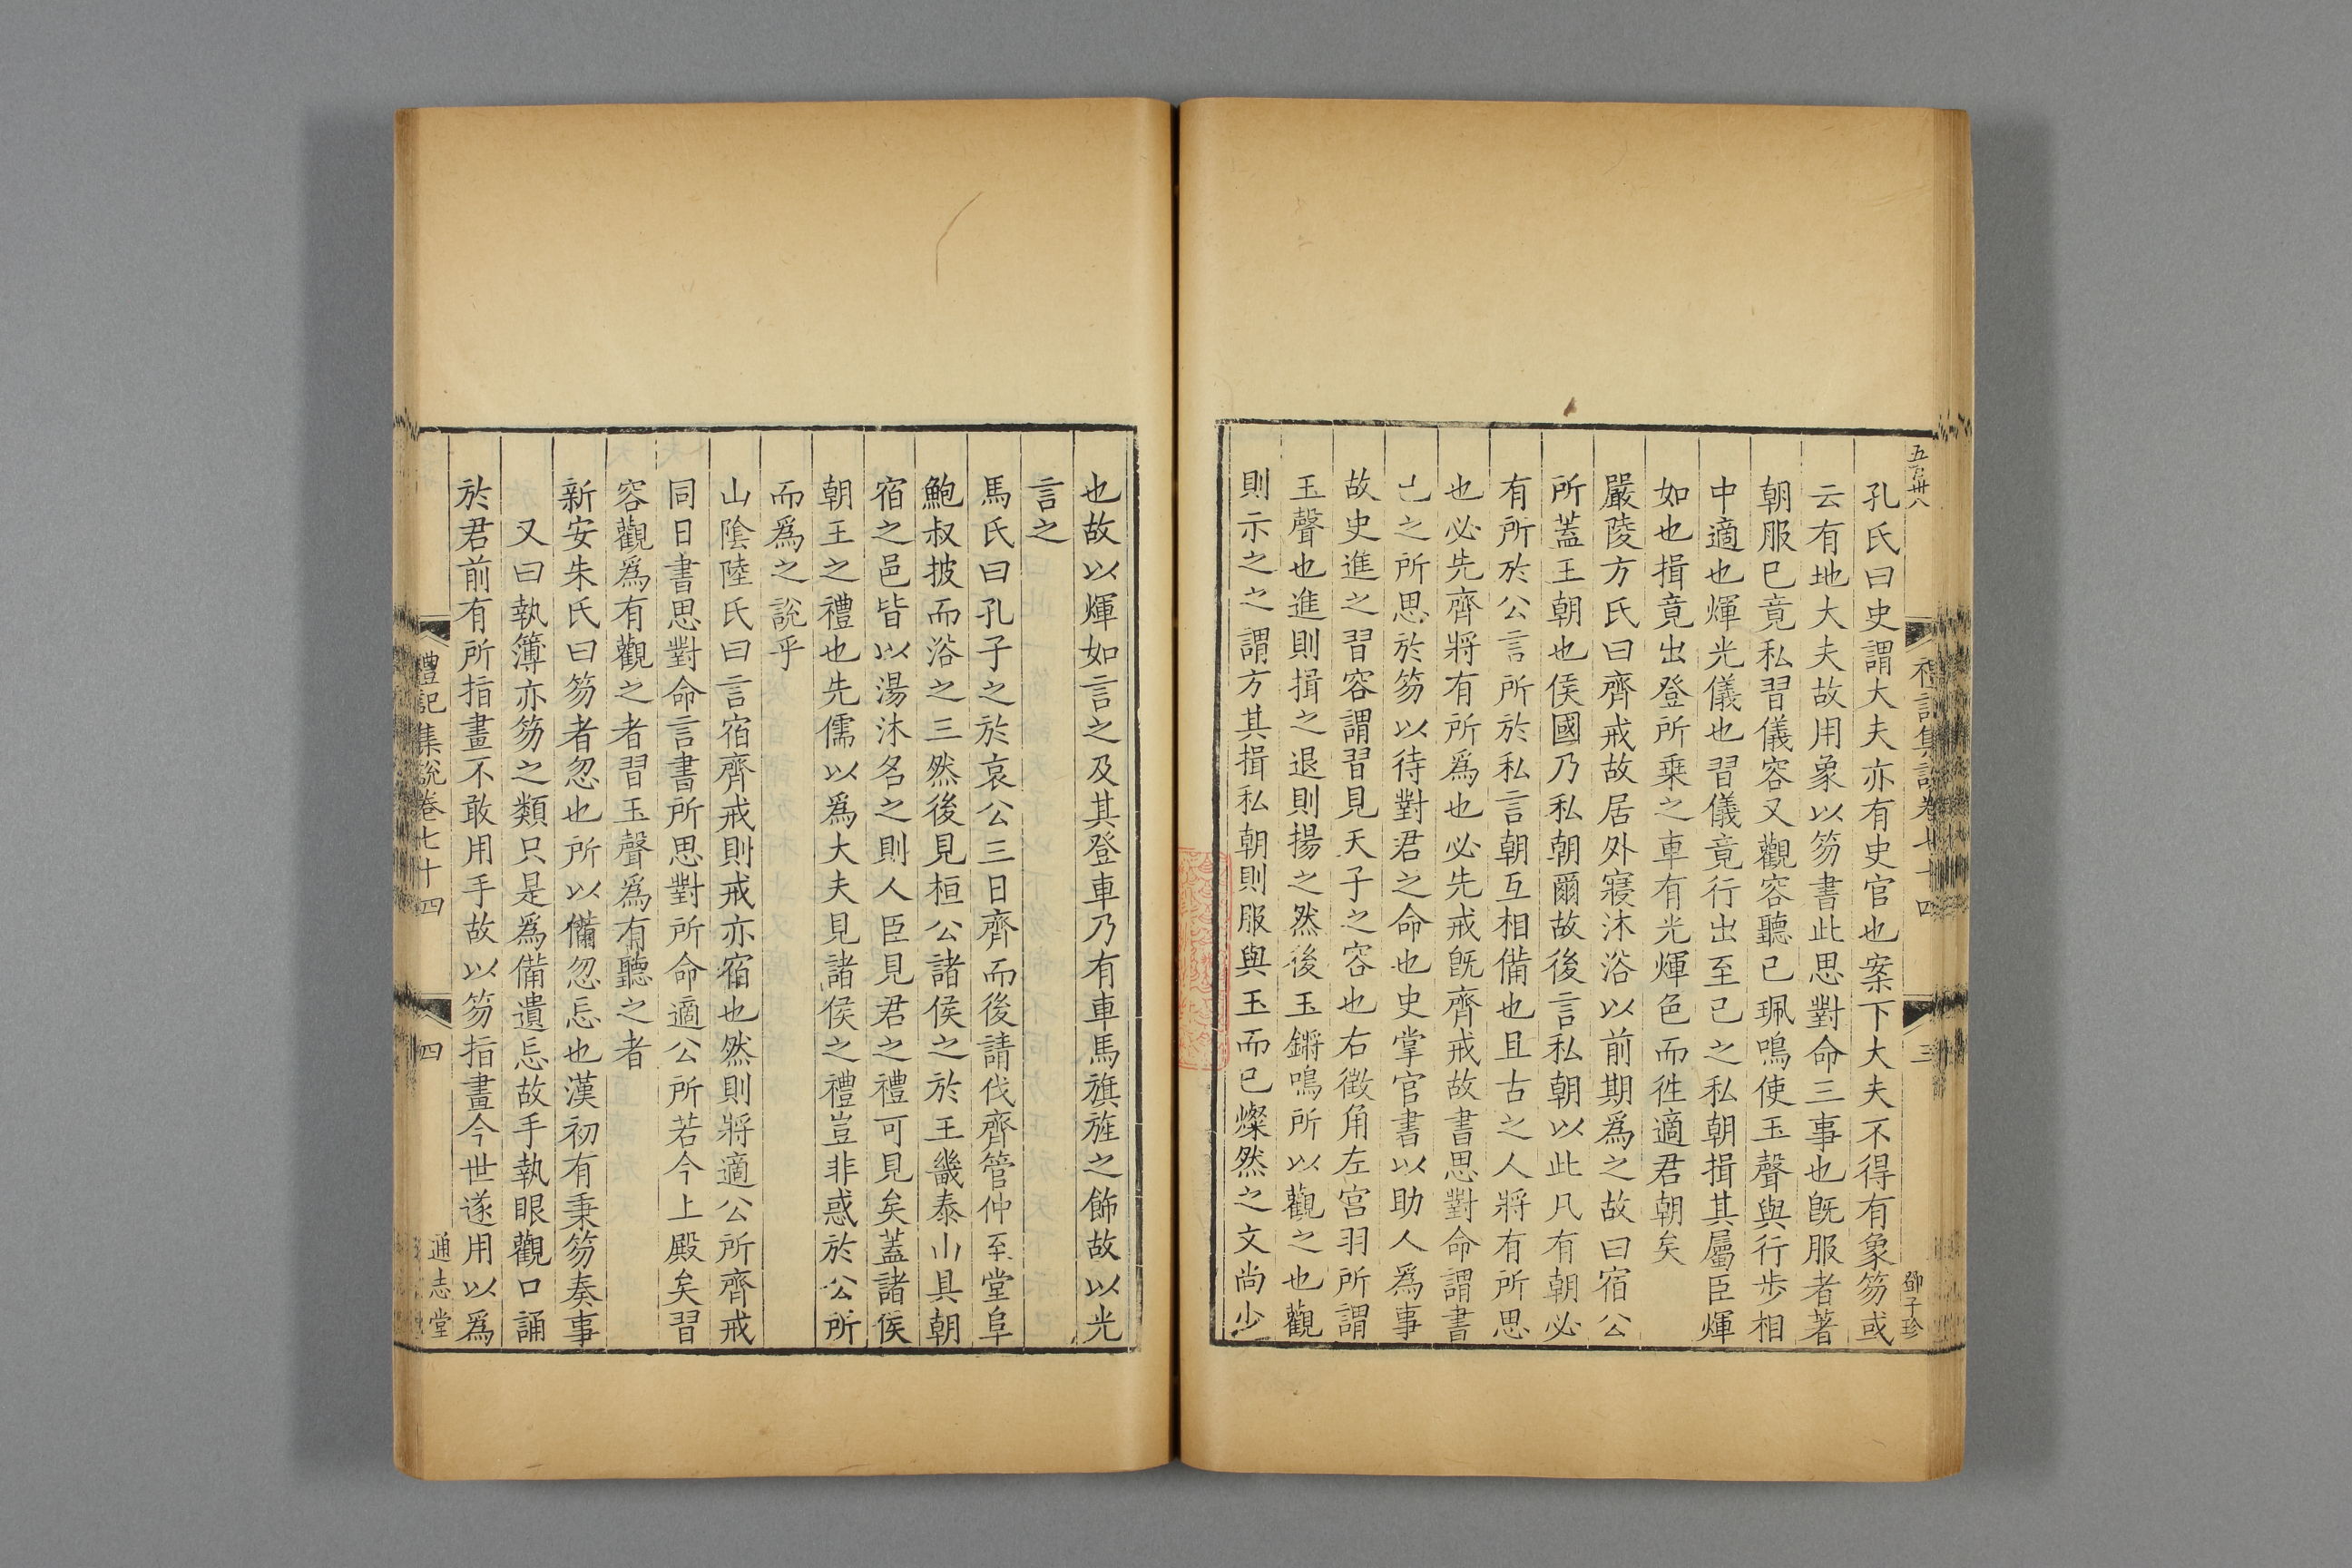 五百卅八
禮記集說卷七十四
三
鄧子珍
孔氏曰史謂大夫亦有史官也案下大夫不得有象笏或
云有地大夫故用象以笏書此思對命三事也旣服者著
朝服已竟私習儀容又觀容聽己珮鳴使玉聲與行步相
中適也煇光儀也習儀竟行出至己之私朝揖其屬臣煇
如也揖竟出登所乗之車有光煇色而徃適君朝矣
嚴陵方氏曰齊戒故居外寢沐浴以前期爲之故曰宿公
所蓋王朝也侯國乃私朝爾故後言私朝以此凡有朝必
有所於公言所於私言朝互相備也且古之人將有所思
也必先齊將有所爲也必先戒旣齊戒故書思對命謂書
己之所思於笏以待對君之命也史掌官書以助人爲事
故史進之習容謂習見天子之容也右徵角左宮羽所謂
玉聲也進則揖之退則揚之然後玉鏘鳴所以觀之也觀
則示之之謂方其揖私朝則服與玉而已燦然之文尚少
也故以煇如言之及其登車乃有車馬旗旌之飾故以光
言之
馬氏曰孔子之於哀公三日齊而後請伐齊管仲至堂阜
鮑叔披而浴之三然後見桓公諸侯之於王畿泰山具朝
宿之邑皆以湯沐名之則人臣見君之禮可見矣蓋諸侯
朝王之禮也先儒以爲大夫見諸侯之禮豈非惑於公所
而爲之說乎
山陰陸氏曰言宿齊戒則戒亦宿也然則將適公所齊戒
同日書思對命言書所思對所命適公所若今上殿矣習
容觀爲有觀之者習玉聲爲有聽之者
新安朱氏曰笏者忽也所以備忽忘也漢初有秉笏奏事
又曰執簿亦笏之類只是爲備遺忘故手執眼觀口誦
於君前有所指畫不敢用手故以笏指畫今世遂用以爲
禮記集說卷七十四
四
通志堂